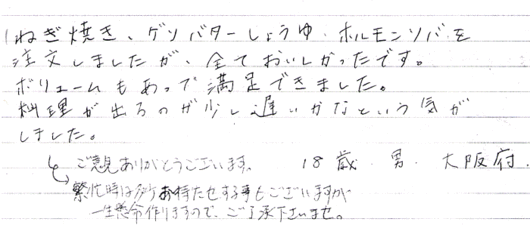 ねぎ焼き、ゲソバターしょうゆ、ホルモンソバを
注文しましたが、全ておいしかったです。
ボリュームもあって満足できました。
料理が出るのが少し遅いかなという気が
しました。
18歳 男 大阪府
ご意見ありがとうございます。
繁忙時は多少お待たせする事もございますが
一生懸命作りますので、ご了承下さいませ。